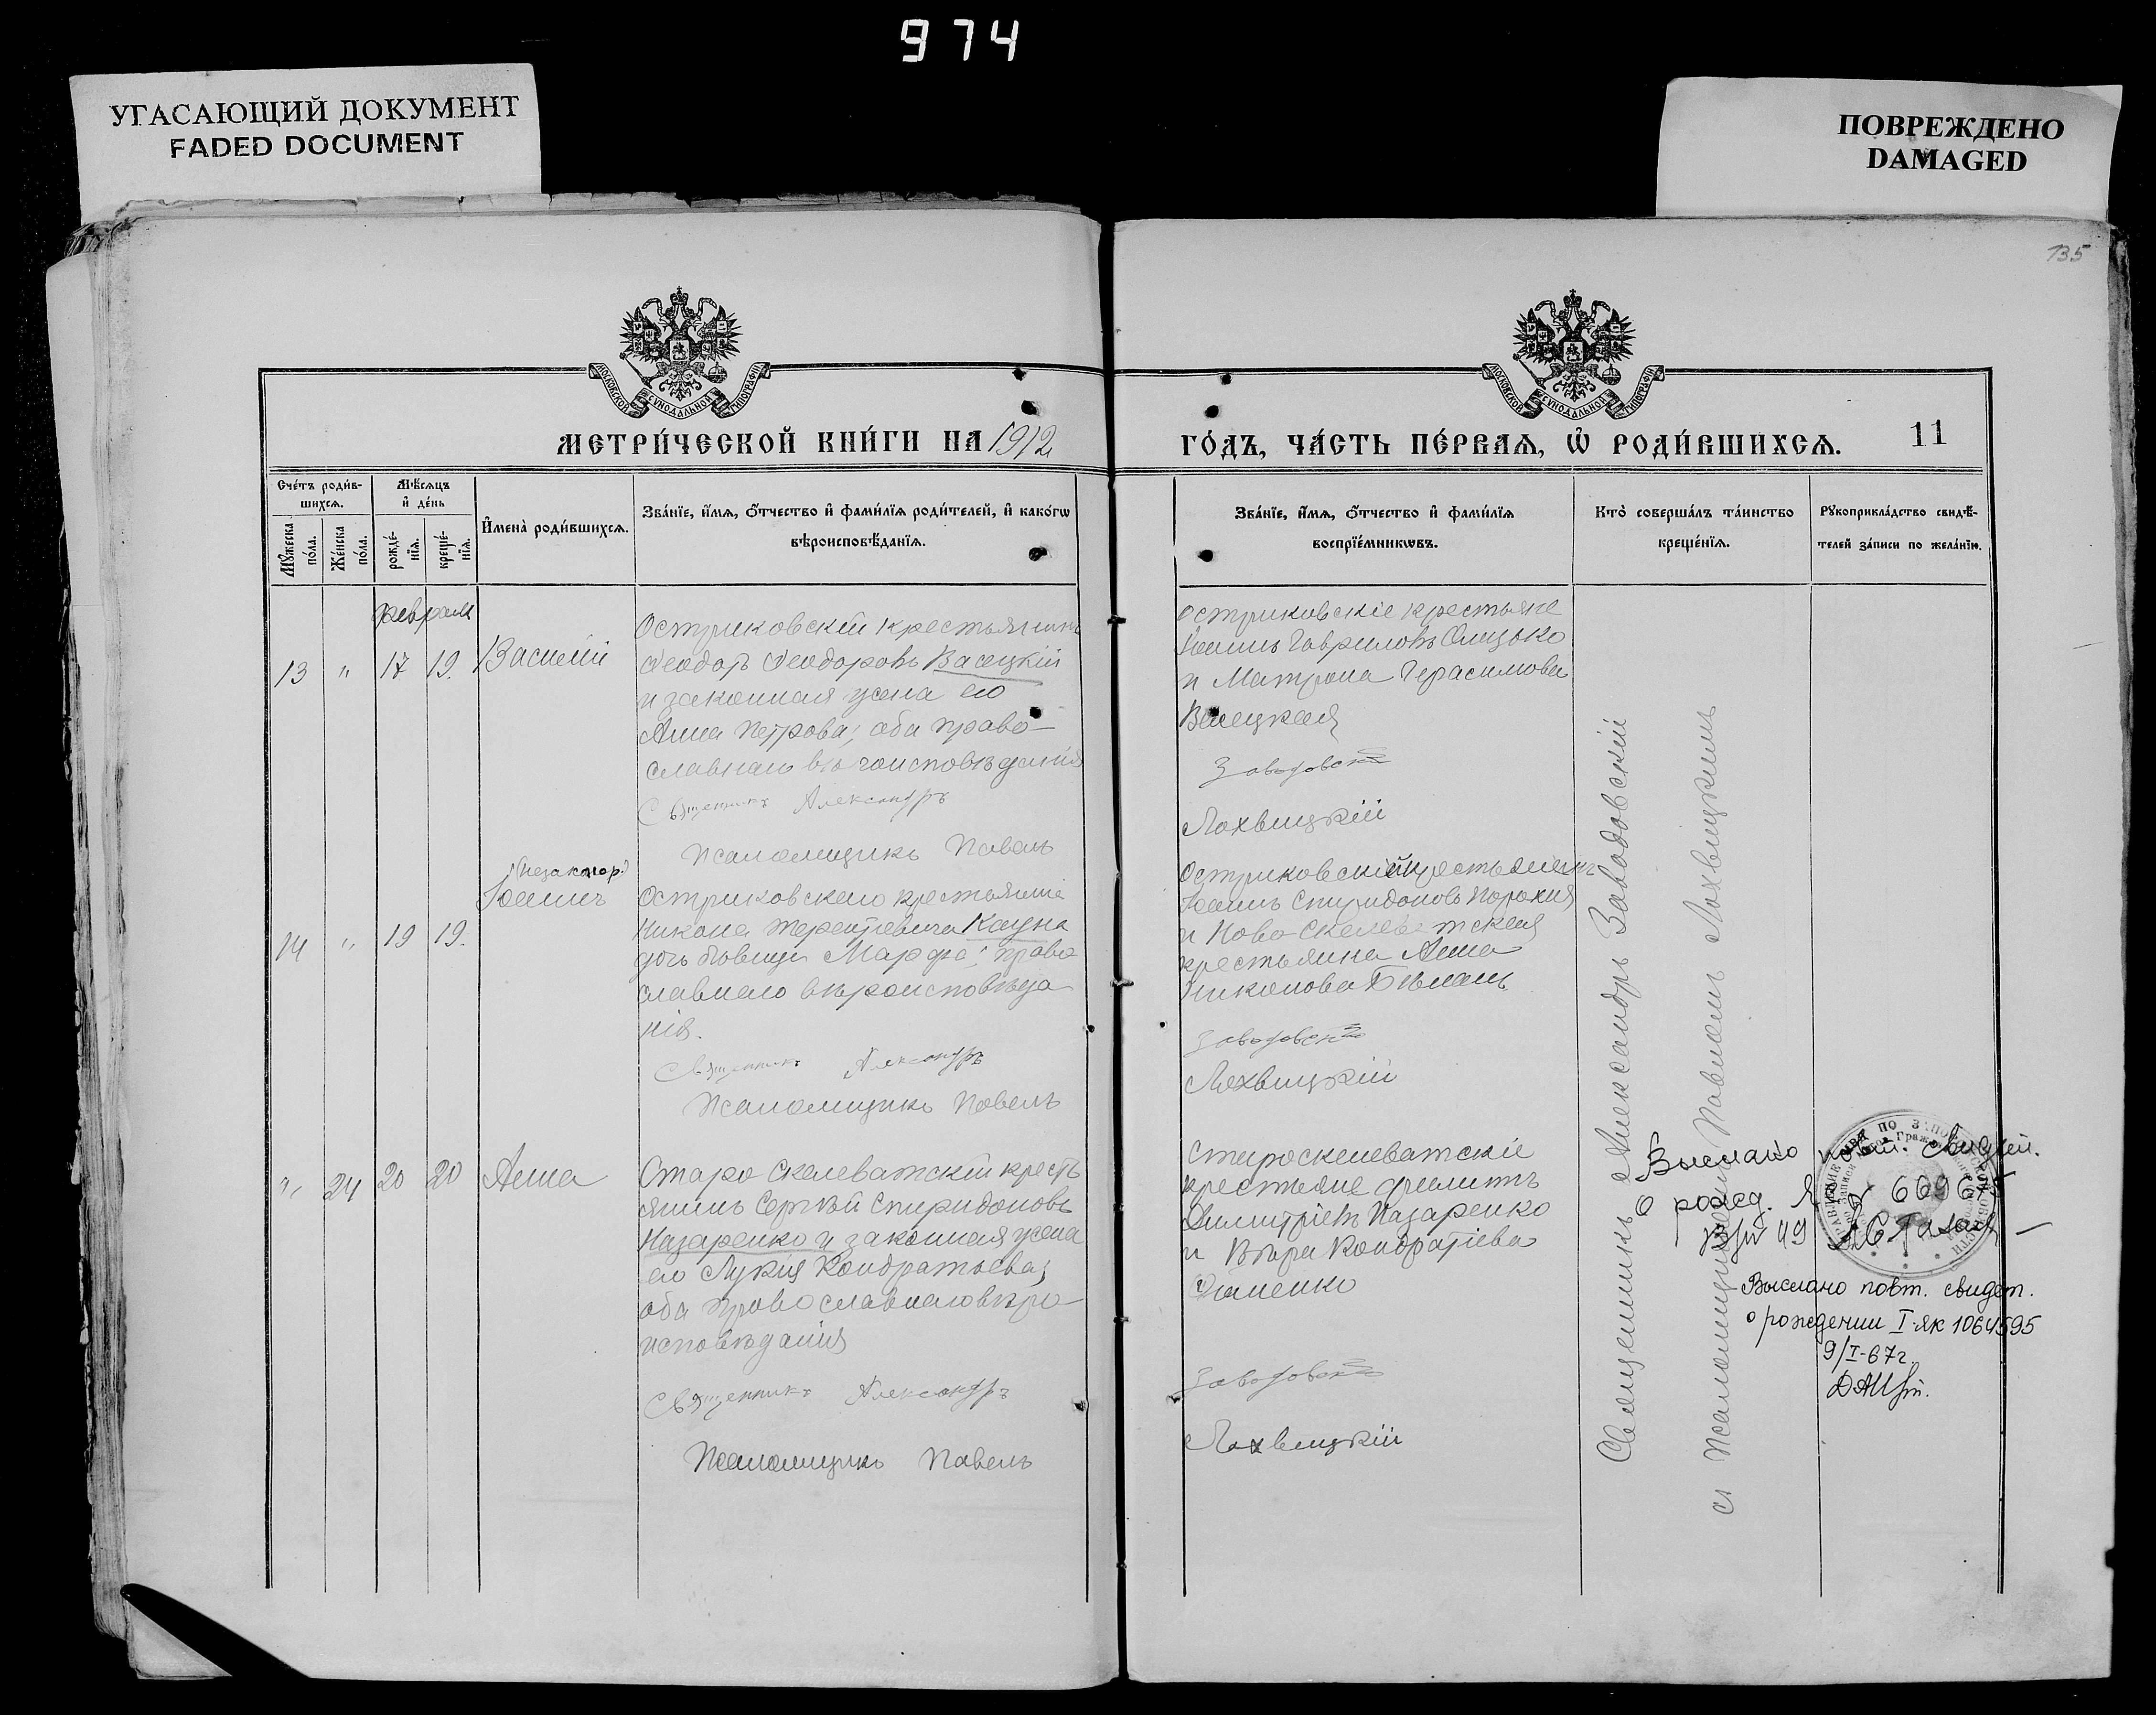 974
УГАСАЮЩИЙ ДОКУМЕНТ
FADED DOCUMENT
ПОВРЕЖДЕНО
DAMAGED
135
МОСКОВСКОЙ СѴНОДАЛЬНОЙ ТИПОГРАФІИ
МОСКОВСКОЙ СѴНОДАЛЬНОЙ ТИПОГРАФІИ
МЕТРИ́ЧЕСКОЙ КНИ́ГИ НА 1912
ГО́ДЪ, ЧА́СТЬ ПЕ́РВАѦ, Ѡ҆ РОДИ́ВШИХСѦ. 11
Сче́тъ роди́в-
шихсѧ.
Мꙋ́жеска по́ла.
Же́нска по́ла.
Мѣ́сѧцъ
и҆ де́нь
рожде́-
нїѧ.
креще́-
нїѧ.
И҆мена̀ роди́вшихсѧ.
Зва́нїе, и҆́мѧ, ѻ҆́тчество и҆ фами́лїѧ роди́телей, и҆ како́гѡ
вѣроисповѣ́данїѧ.
Зва́нїе, и҆́мѧ, ѻ҆́тчество и҆ фами́лїѧ
воспрїе́мникѡвъ.
Кто̀ соверша́лъ та́инство
креще́нїѧ.
Рꙋкоприкла́дство свидѣ́-
телей за́писи по жела́нїю.
Февраля
13 " 17 19. Василій
Остриковскій крестьянинъ
Ѳеодоръ Ѳеодоровъ Васецкій
и законная жена его
Анна Петрова; оба право-
славнаго вѣроисповѣданія
Священникъ Александръ
Псаломщикъ Павелъ
Остриковскіе крестьяне
Іоаннъ Гавриловъ
и Матрона Герасимова
Васецкая
Заводовскій
Лохвицкій
(незаконор.)
Іоаннъ
14 " 19 19.
Остриковскаго крестьянина
Никона Терентіевича Кауна
дочь дѣвица Марфа; право
славнаго вѣроисповѣда
нія.
Священникъ Александръ
Псаломщикъ Павелъ
Остриковскій крестьянинъ
Іоаннъ Спиридоновъ
и Ново Скелеватская
крестьянка Анна
Никонова
Заводовскій
Лохвицкій
" 24 20 20 Анна
Старо Скелеватскій кресть
янинъ Сергѣй Спиридоновъ
Назаренко и законная жена
его Лукія Кондратьева;
оба православнаго вѣро-
исповѣданія
Священникъ Александръ
Псаломщикъ Павелъ
Староскелеватскіе
крестьяне Филиппъ
Димитріевъ Назаренко
и Вѣра Кондратіева
Заводовскій
Лохвицкій
Священникъ Александръ Заводовскій
съ Псаломщикомъ Павломъ Лохвицкимъ
Выслано повт. свидет.
о рожд.
Выслано повт. свидет.
о рождении I-ЯК 1064595
9/I-67г.